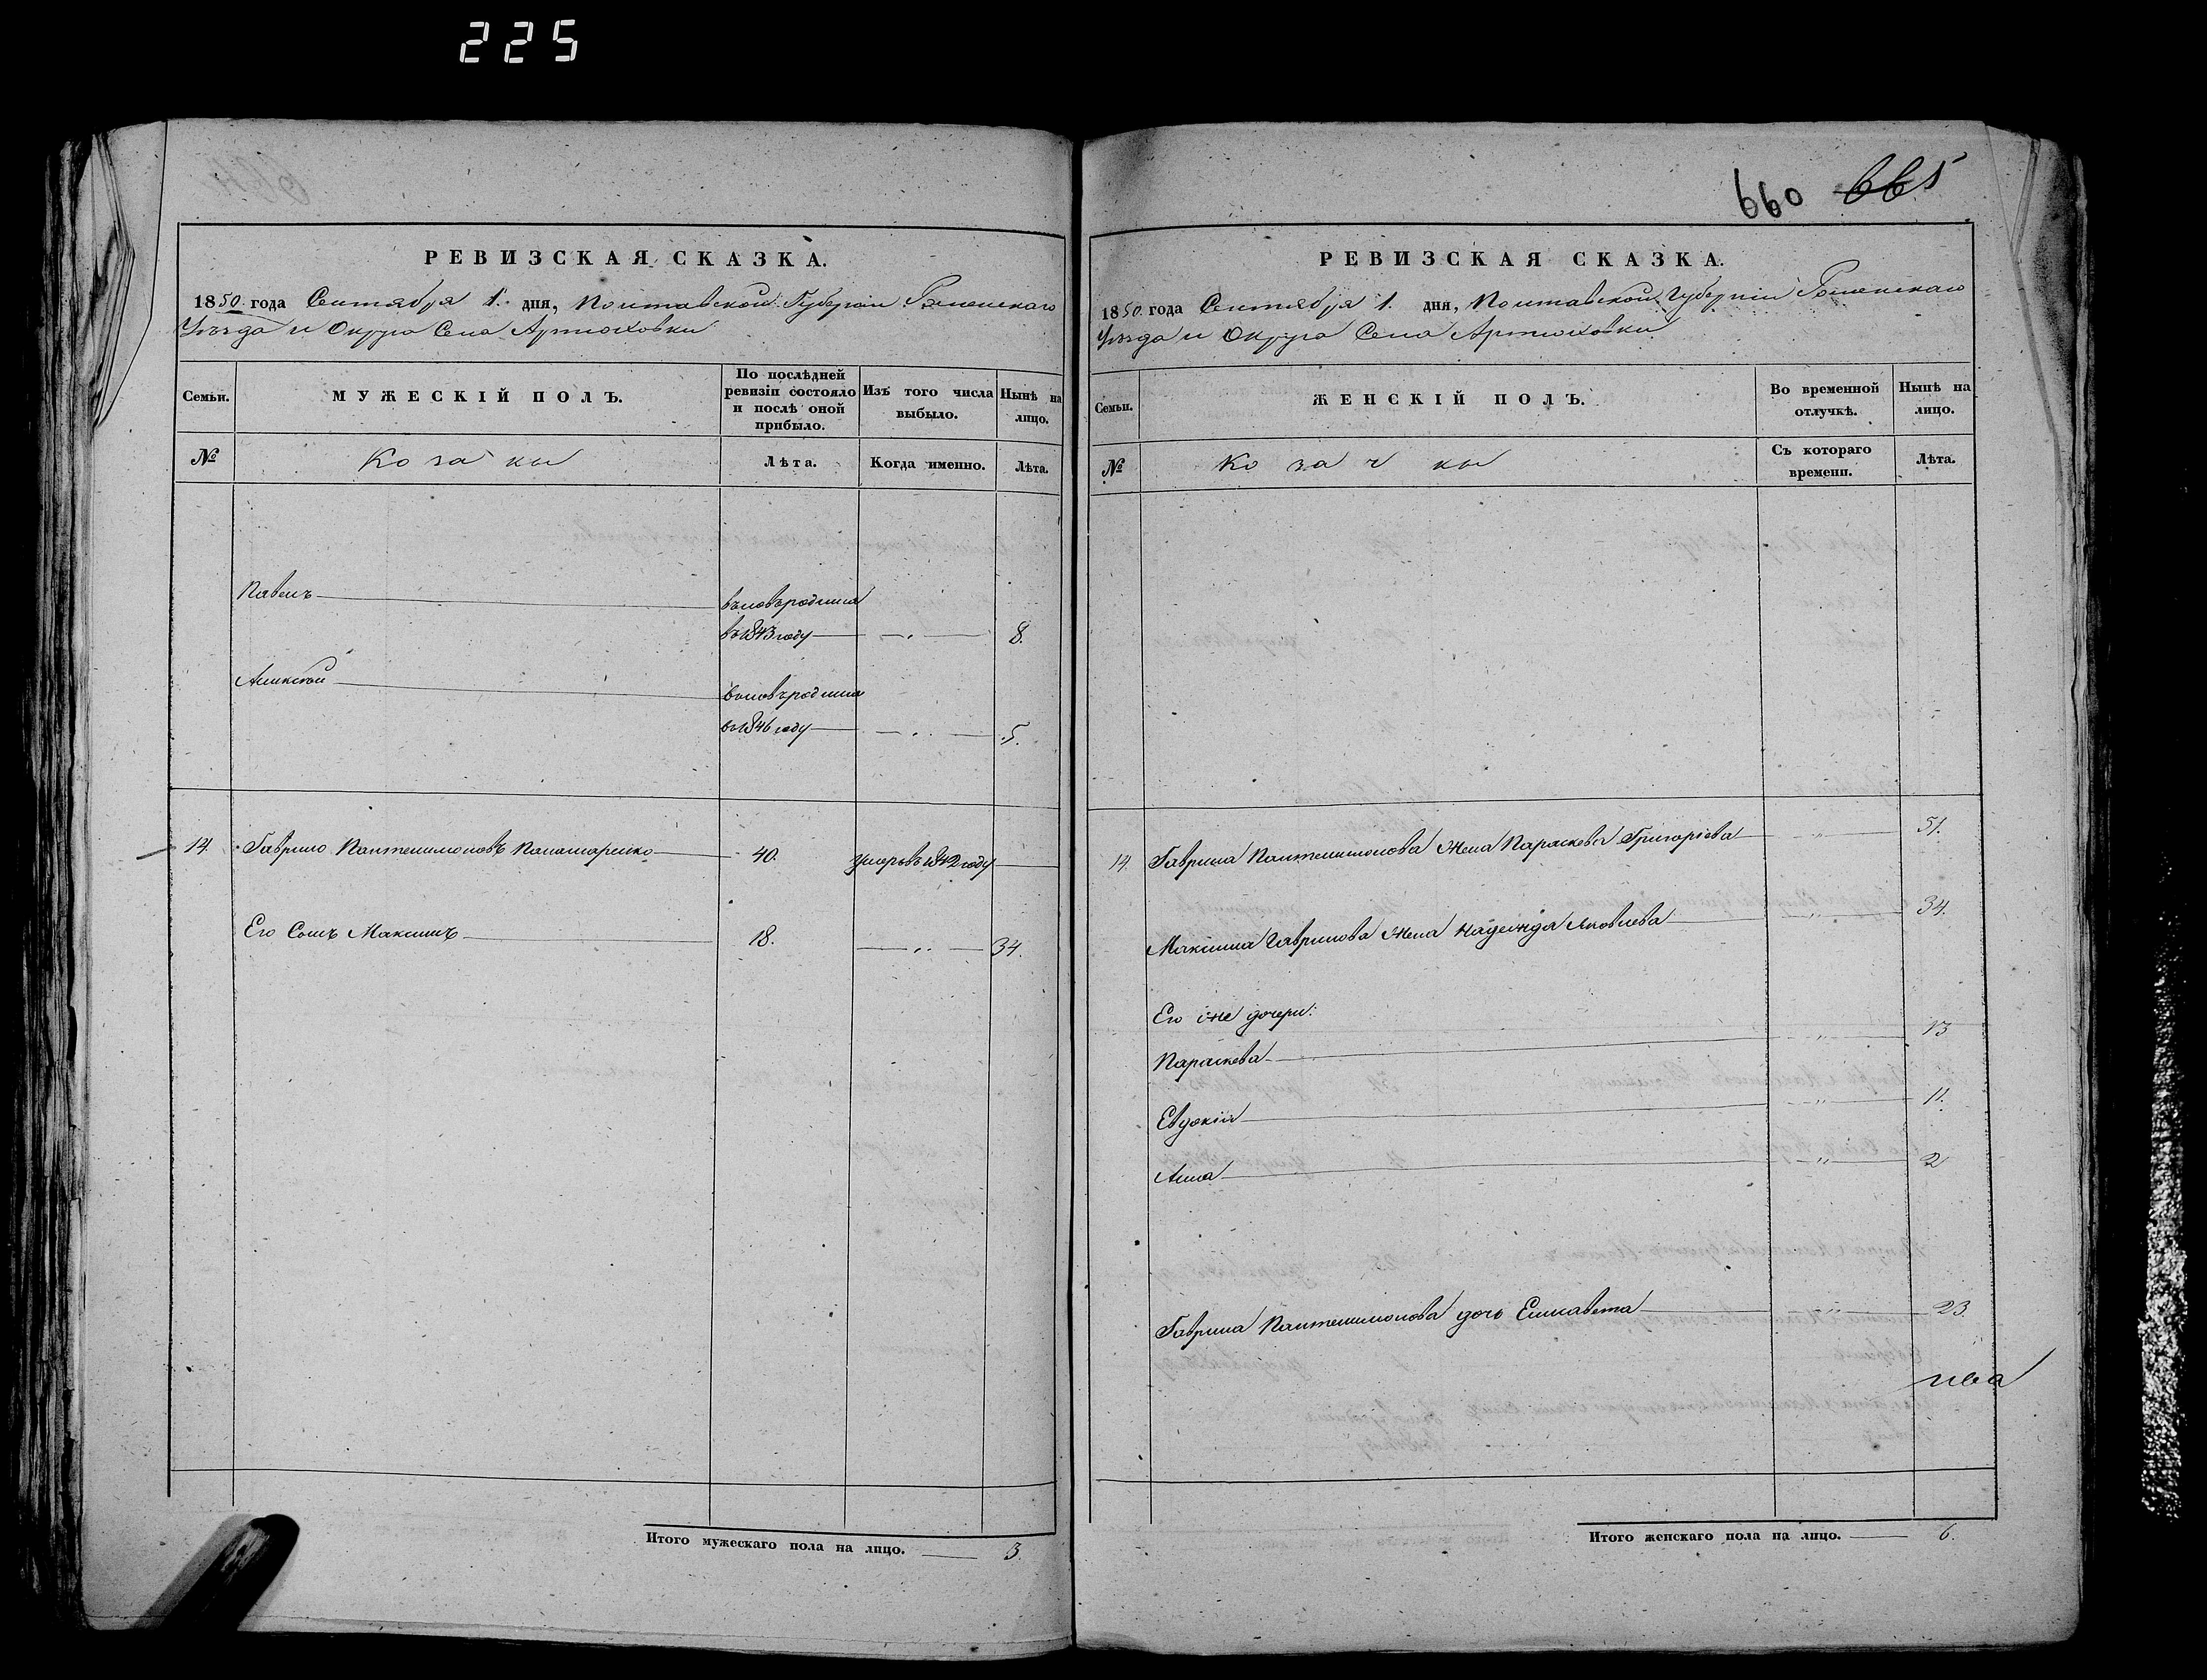 225
660 665
РЕВИЗСКАЯ СКАЗКА.
1850 года Сентября 1. дня, Полтавской Губернiи Роменскаго
Уѣзда и Округа Села Артюховки
Семьи. МУЖЕСКІЙ ПОЛЪ. По послѣдней ревизіи состояло и послѣ оной прибыло. Изъ того числа выбыло. Нынѣ на лицо.
№ Козаки Лѣта. Когда именно. Лѣта.
Павелъ вновьродился
въ 1843 году 8.
Алексѣй вновьродился
въ 1846 году 5.
14. Гаврило Пантелимоновъ Панамаренко 40. умеръ въ 1842 году
Его Сынъ Максимъ 18. 34.
Итого мужескаго пола на лицо. 3.
РЕВИЗСКАЯ СКАЗКА.
1850 года Сентября 1. дня, Полтавской Губерніи Роменскаго
Уѣзда и Округа Села Артюховки
Семьи. ЖЕНСКІЙ ПОЛЪ. Во временной отлучкѣ. Нынѣ на лицо.
№ Козачки Съ котораго времени. Лѣта.
14. Гаврила Пантелимонова Жена Параскева Григорiева 51.
Максима Гаврилова Жена Надежда Яковлева 34.
Его же дочери:
Параскева 13
Евдокія 11.
Анна 2
Гаврила Пантелимонова дочь Елисавета 23.
Итого женскаго пола на лицо. 6.